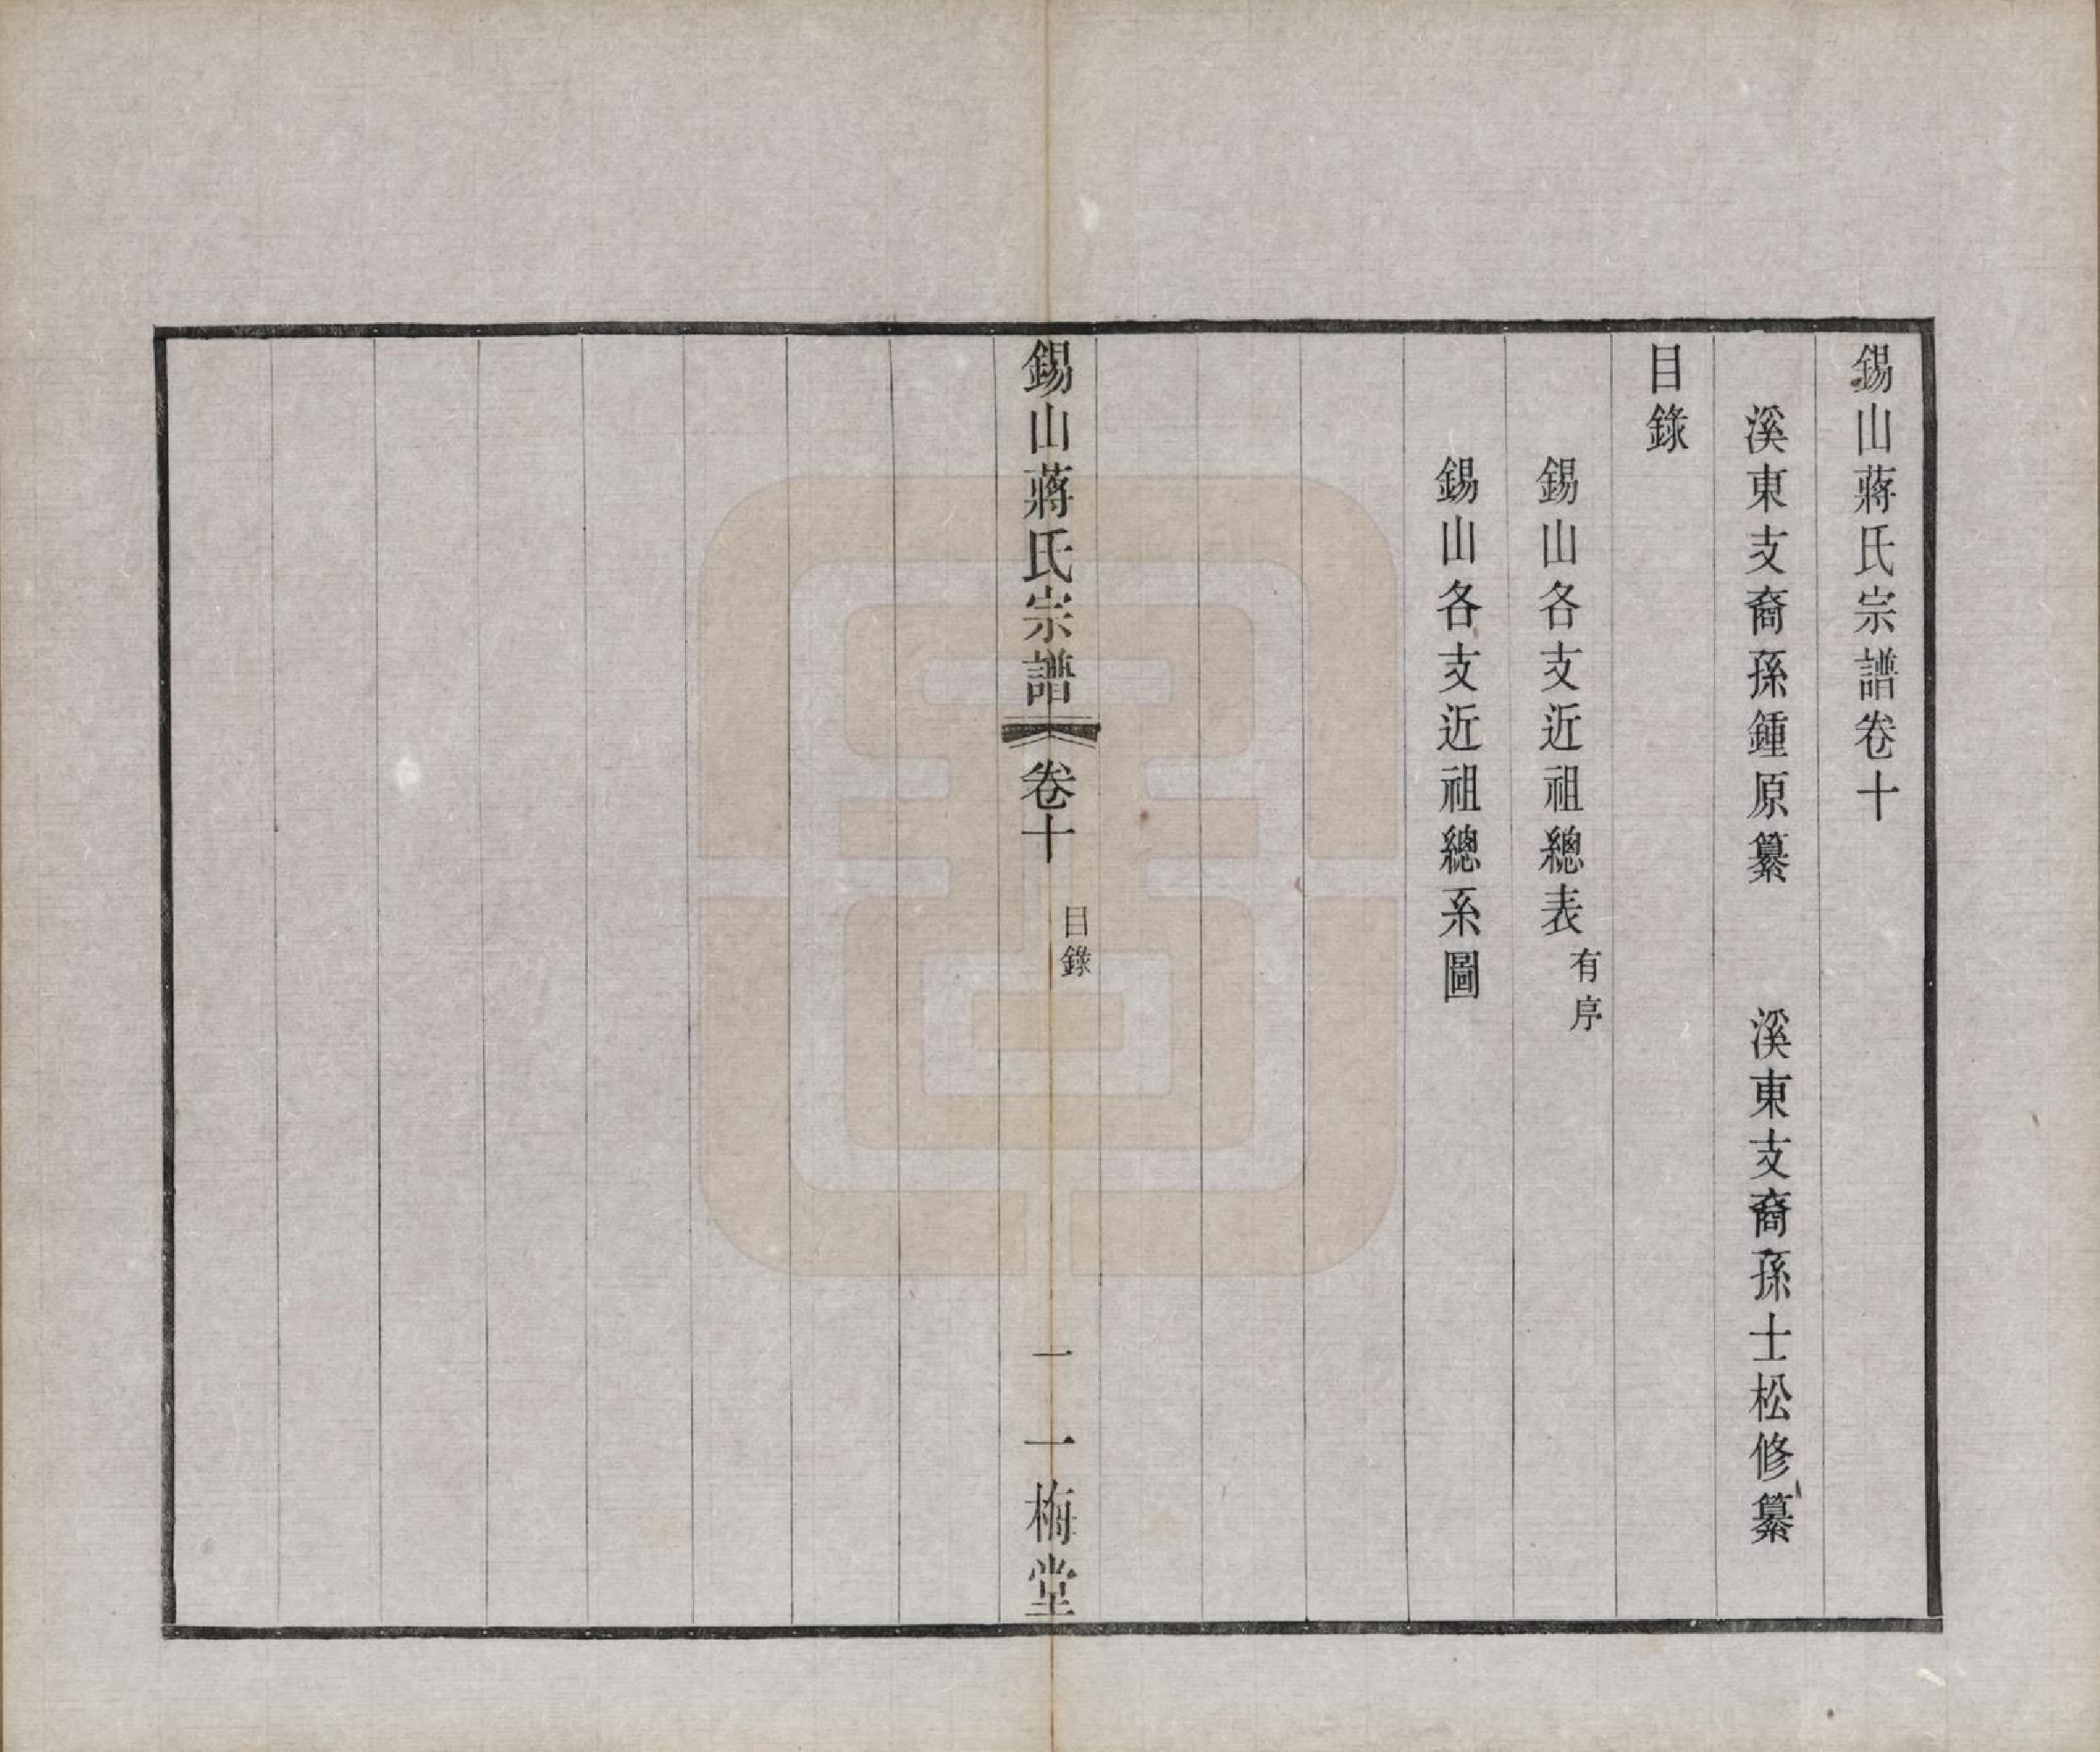 錫山蔣氏宗譜卷十
溪東支裔孫鍾原纂　溪東支裔孫士松修纂
目錄
錫山各支近祖總表有序
錫山各支近祖總系圖
錫山蔣氏宗譜　卷十　目錄　一　一梅堂